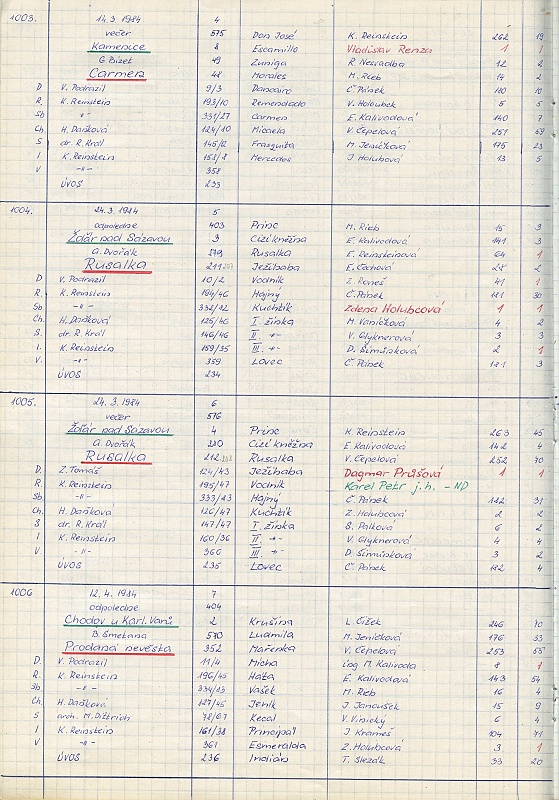 1003. 14.3.1984 4
večer 575 Don José K. Reinstein 262 19
Kamenice 8 Escamillo Vladislav Renza 1 1
G. Bizet 49 Zuniga P. Nesvadba 12 2
Carmen 48 Morales M. Rieb 14 2
D V. Podrazil 9/3 Dancairo Č. Pánek 110 10
R. K. Reinstein 193/10 Remendado V. Holoubek 5 5
Sb -"- 331/27 Carmen E. Kalivodová 140 7
Ch. H. Daňková 124/10 Micaela V. Čepelová 251 69
S dr. R. Král 145/2 Frasquita M. Jeníčková 175 23
I K. Reinstein 158/8 Mercedes J. Holubová 13 5
V -"- 358
ÚVOS 233
1004. 24.3.1984 5
odpoledne 403 Princ M. Rieb 15 3
Žďár nad Sázavou 3 Cizí kněžna E. Kalivodová 141 3
A. Dvořák 579 Rusalka E. Reinsteinová 64 1
Rusalka 211 Ježibaba E. Čechová 2
D V. Podrazil 10/2 Vodník 41 1
R. K. Reinstein 194/46 Hajný Č. Pánek 111 30
Sb -"- 332/22 Kuchtík Zdena Holubcová 1 1
Ch. H. Daňková 125/46 I. žínka M. Vaníčková 4 2
S. dr. R. Král 146/46 II. -"- V. Glyknerová 3 3
I. K. Reinstein 159/35 III. -"- D. Šimůnková 2 1
V. -"- 359 Lovec Č. Pánek 111 3
ÚVOS 234
1005. 24.3.1984 6
večer 576
Žďár nad Sázavou 4 Princ K. Reinstein 263 45
A. Dvořák 580 Cizí kněžna E. Kalivodová 142 4
Rusalka 212 Rusalka V. Čepelová 252 70
D. Z. Tomáš 124/43 Ježibaba Dagmar Průšová 1 1
R. K. Reinstein 195/47 Vodník Karel Petr j.h. - ND
Sb. -"- 333/23 Hajný Č. Pánek 112 31
Ch. H. Daňková 126/47 Kuchtík Z. Holubcová 2 2
S dr. R. Král 147/47 I. žínka B. Palková 6 2
I K. Reinstein 160/36 II -"- V. Glyknerová 4 4
V. -"- 360 III -"- D. Šimůnková 3 2
ÚVOS 235 Lovec Č. Pánek 112 4
1006 12.4.1984 7
odpoledne 404
Chodov u Karl. Varů 2 Krušina L. Čížek 246 70
B. Smetana 580 Ludmila M. Jeníčková 176 33
Prodaná nevěsta 352 Mařenka V. Čepelová 253 55
D. V. Podrazil 11/4 Mícha ing M. Kalivoda 8 1
R. K. Reinstein 196/45 Háta E. Kalivodová 143 54
Sb -"- 334/23 Vašek M. Rieb 16 4
Ch. H. Daňková 127/45 Jeník J. Janoušek 15 9
S arch. M. Dittrich 78/67 Kecal V. Vinický 6 4
I K. Reinstein 161/38 Principál J Krameš 104 71
V -"- 361 Esmeralda Z. Holubcová 3 1
ÚVOS 236 Indián T. Slezák 33 20